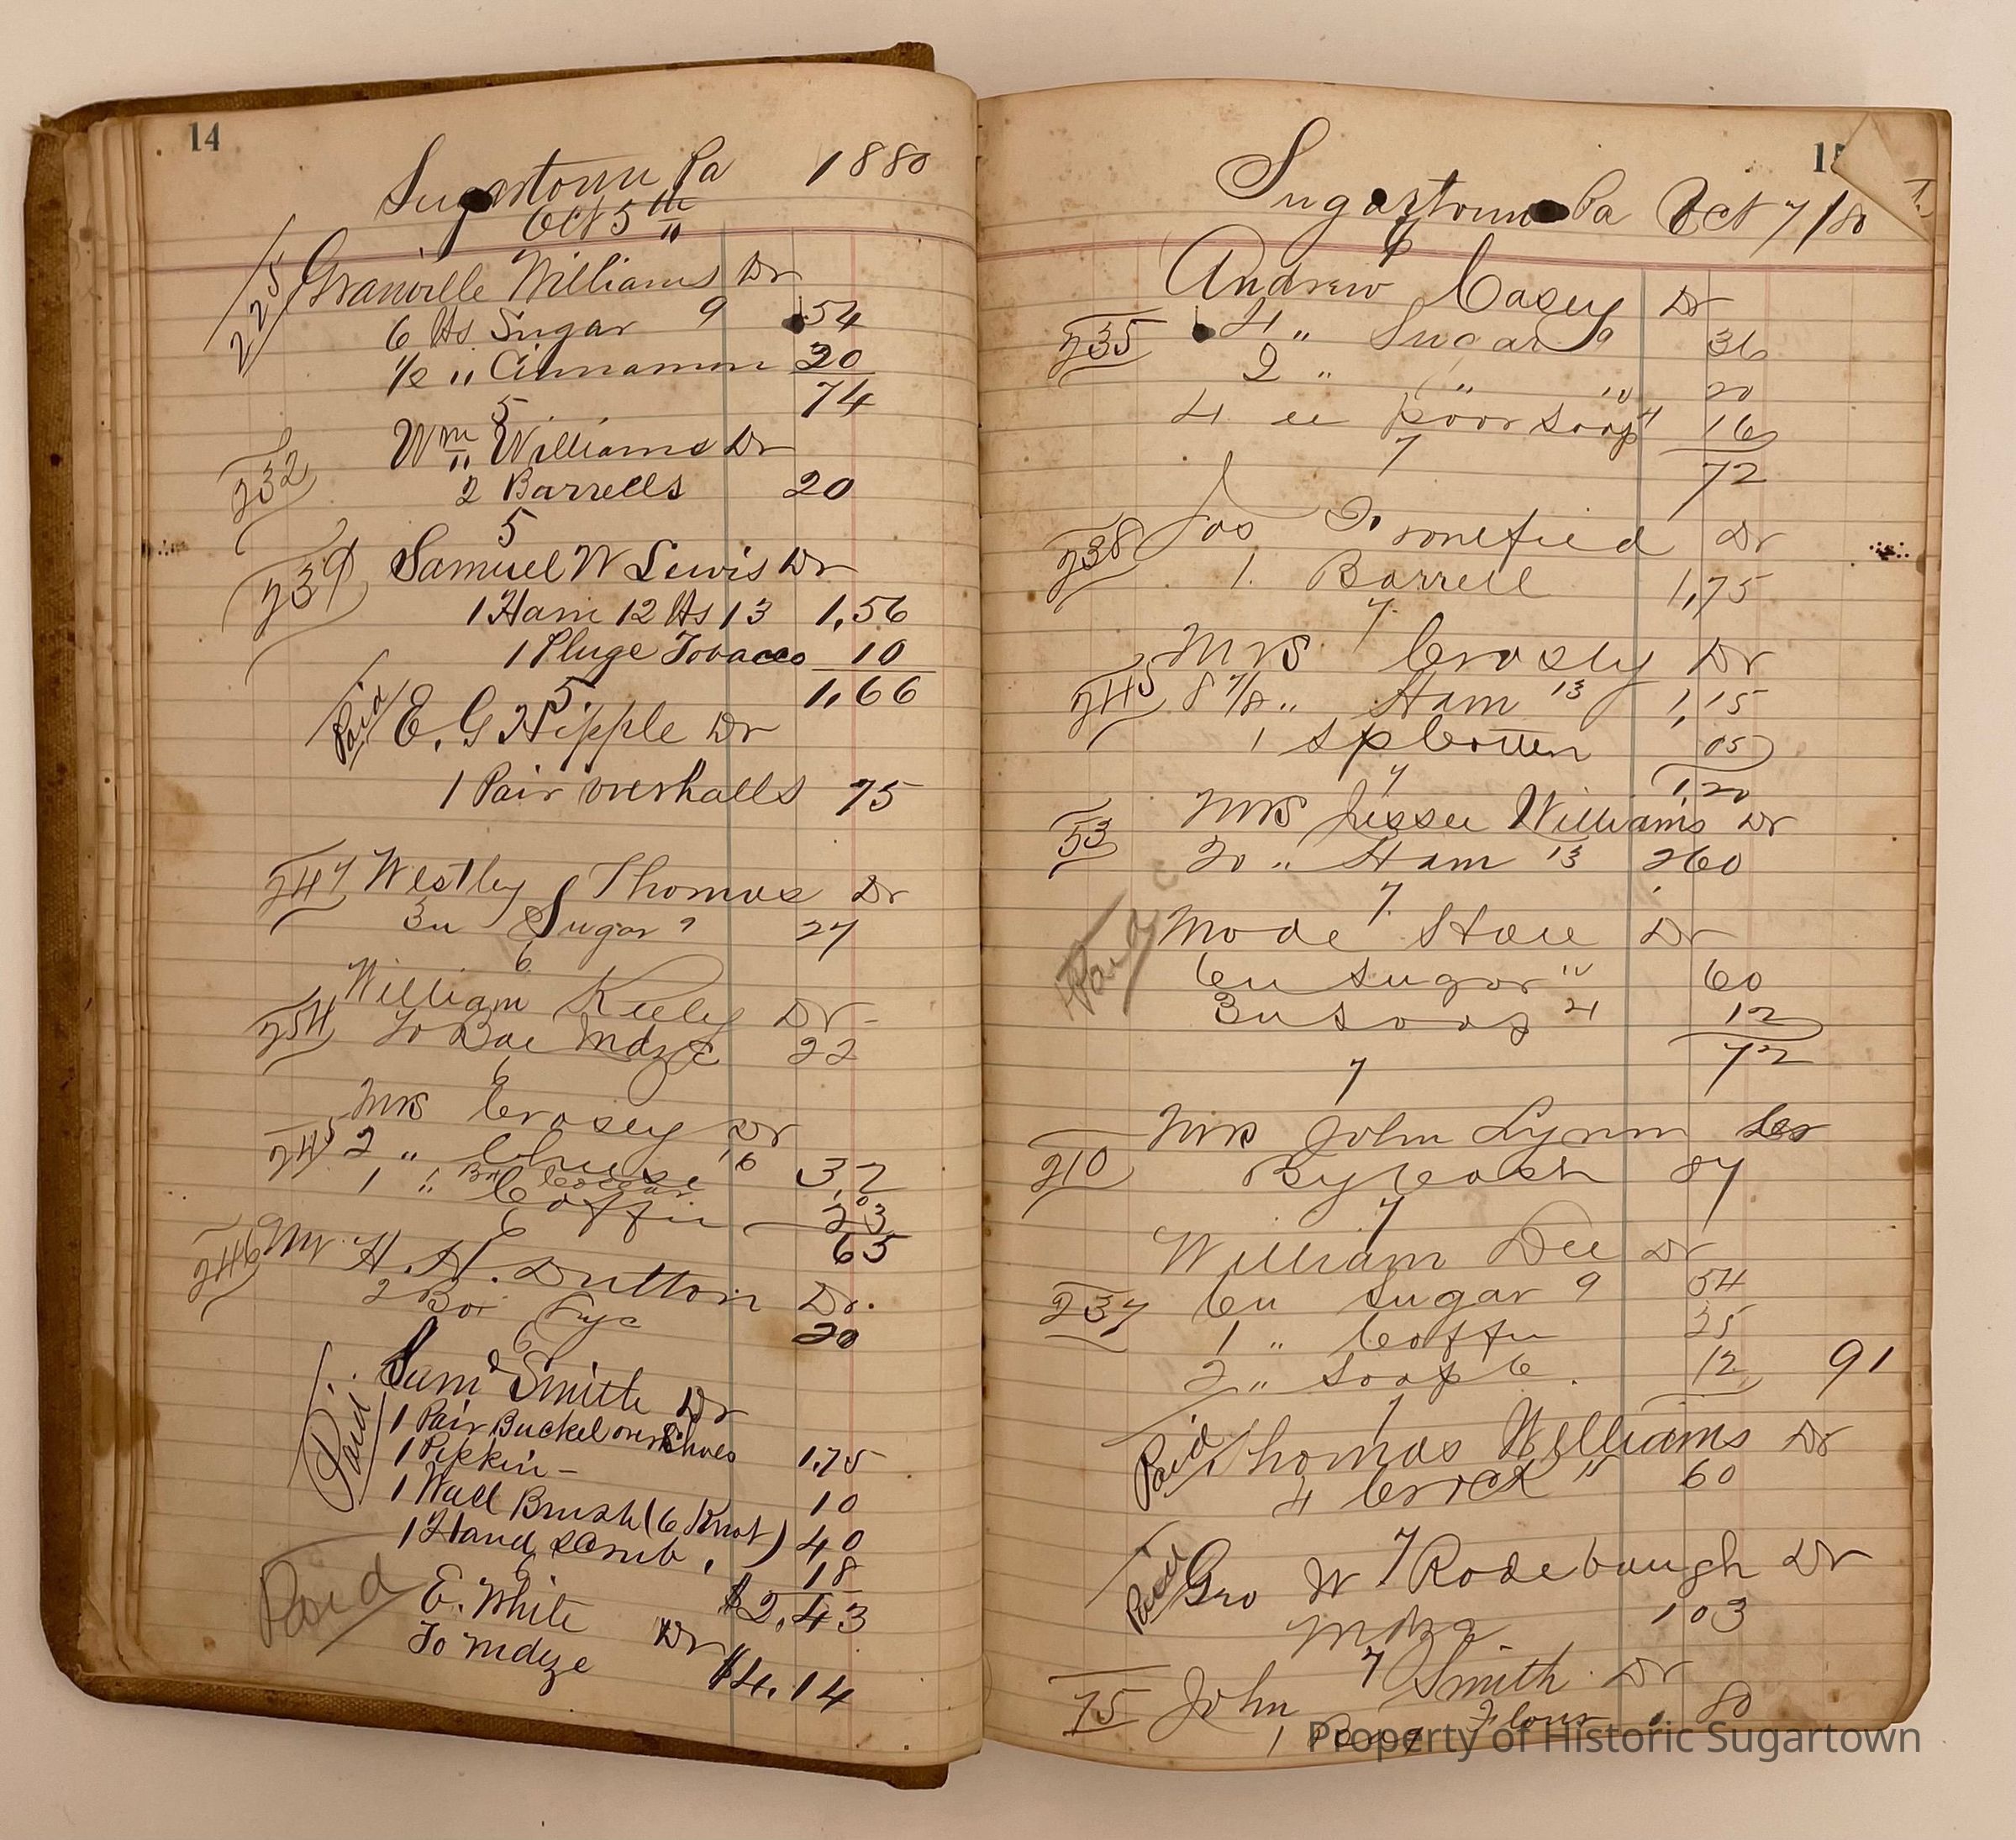 14
Sugartown Pa 1880
Oct 5th
225 Granville Williams Dr
6 lbs Sugar 9 54
1/2 " Cinnamon 20
74
5
232 Wm Williams Dr
2 Barrells 20
5
239 Samuel W Lewis Dr
1 Ham 12 lbs 13 1,56
1 Pluge Tobacco 10
1,66
5
Paid E. G Hipple Dr
1 Pair overhalls 75
247 Westley Thomas Dr
3 " Sugar 9 27
6
William Keeley Dr
254 To Mdze 22
6
Mrs Crosey Dr
245 2 " Cheese 16 32
1 " Coffee
65
6
246 Mr H. H. Dutton Dr.
2 Box 20
6
Paid Saml Smith Dr
1 Pair Buckel over Shoes 1.75
1 Pipkin - 10
1 Wall Brush (6 Knot) 40
1 Hand scrub, 18
$2,43
6
Paid E. White Dr
To mdze $4.14
15
Sugartown Pa Oct 7/80
6
Andrew Casey Dr
235 4 " Sugar 9 36
2 " " 10 20
4 " poor soap 4 16
72
7
238 Jos Dr
1. Barrell 1,75
7
Mrs Crosly Dr
245 8 7/8 " Ham 13 1,15
1 Sp Cotten 05
1,20
7
53 Mrs Jessee Williams Dr
20 " Ham 13 260
7
Paid Mode Dr
6 " Sugar 10 60
3 " soap 4 12
72
7
Mrs John Lynn Cr
210 By Cash 87
7
William Dee Dr
237 6 " Sugar 9 54
1 " Coffee 25
2 " Soap 6 12 91
7
Paid Thomas Williams Dr
4 Crock 15 60
7
Paid Geo W Rodebaugh Dr
Mdze 103
7
75 John Smith Dr
1 Flour 80
Property of Historic Sugartown